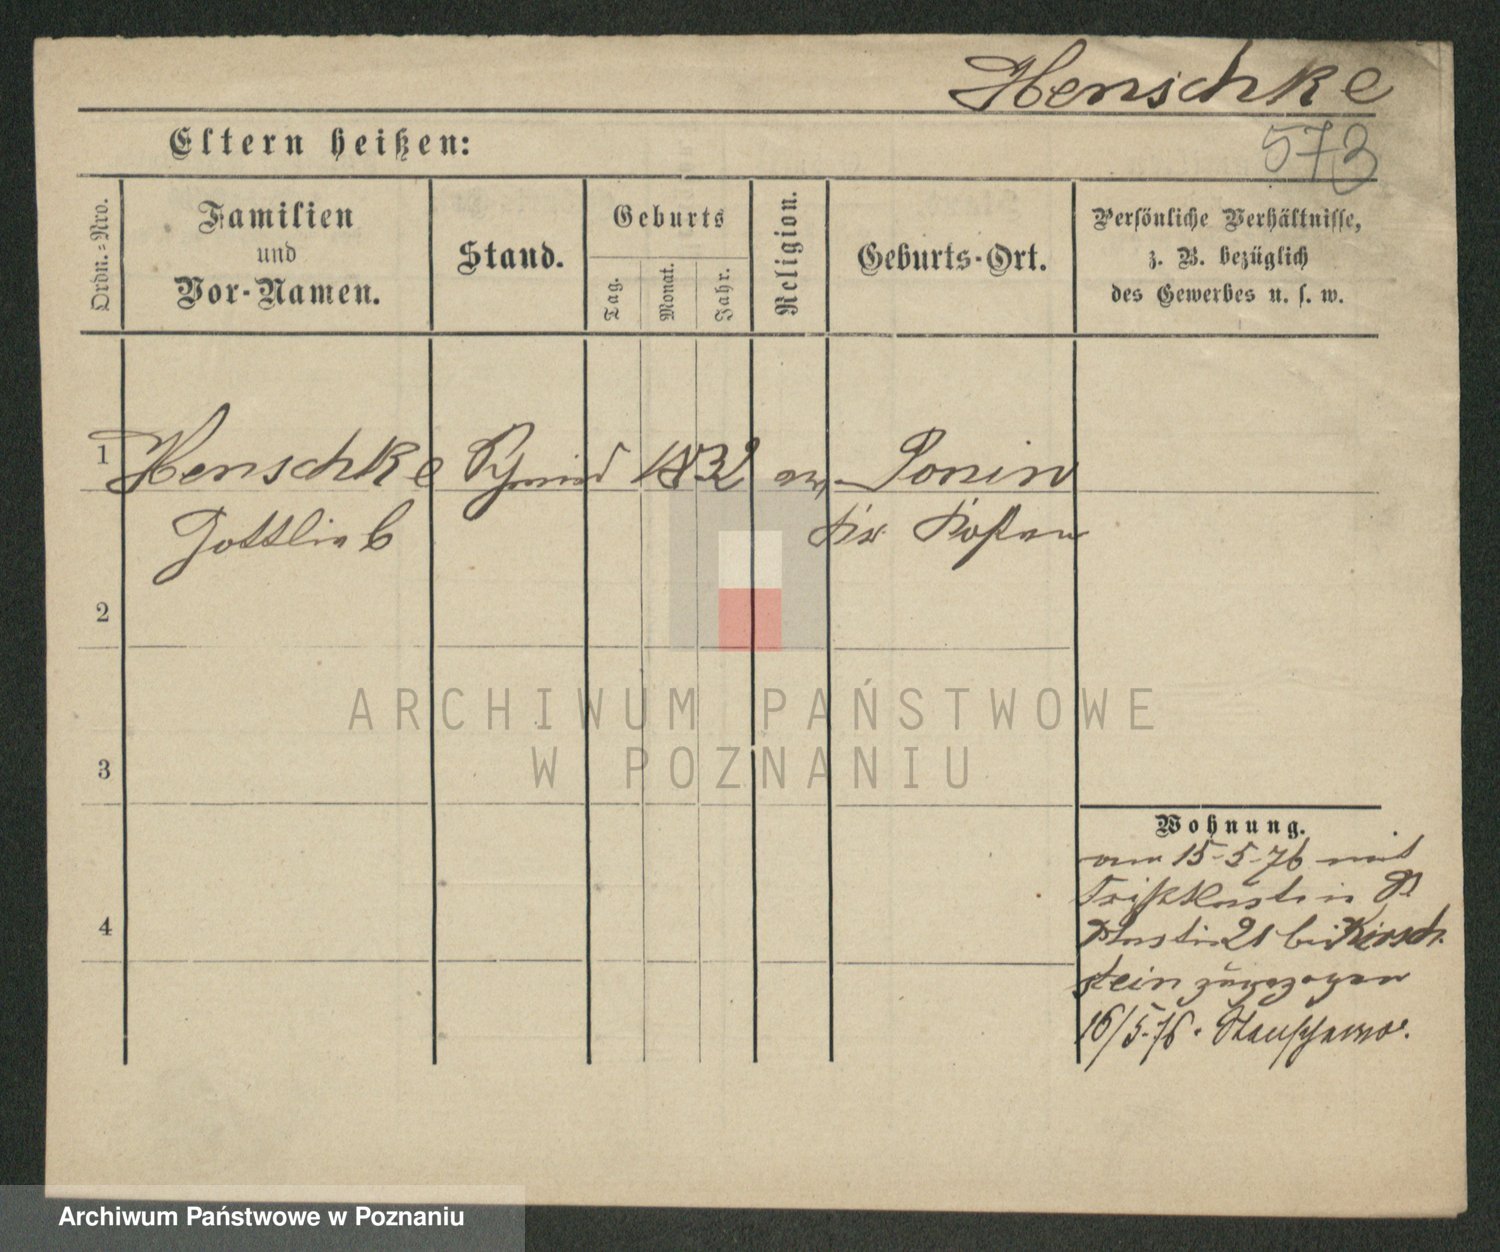 Henschke
573
Eltern heißen:
Ordn.-Nro.
Familien
und
Vor-Namen.
Stand.
Geburts
Tag.
Monat.
Jahr.
Religion.
Geburts-Ort.
Persönliche Verhältnisse,
z. B. bezüglich
des Gewerbes u. s. w.
1 Henschke Schmied 1832 ev. Ponin
Gottlieb Kr Kosten
2
3
4
Wohnung.
am 15-5-76 mit
21 bei Kirsch
stein zugezogen
16/5.76.
ARCHIWUM PAŃSTWOWE
W POZNANIU
Archiwum Państwowe w Poznaniu